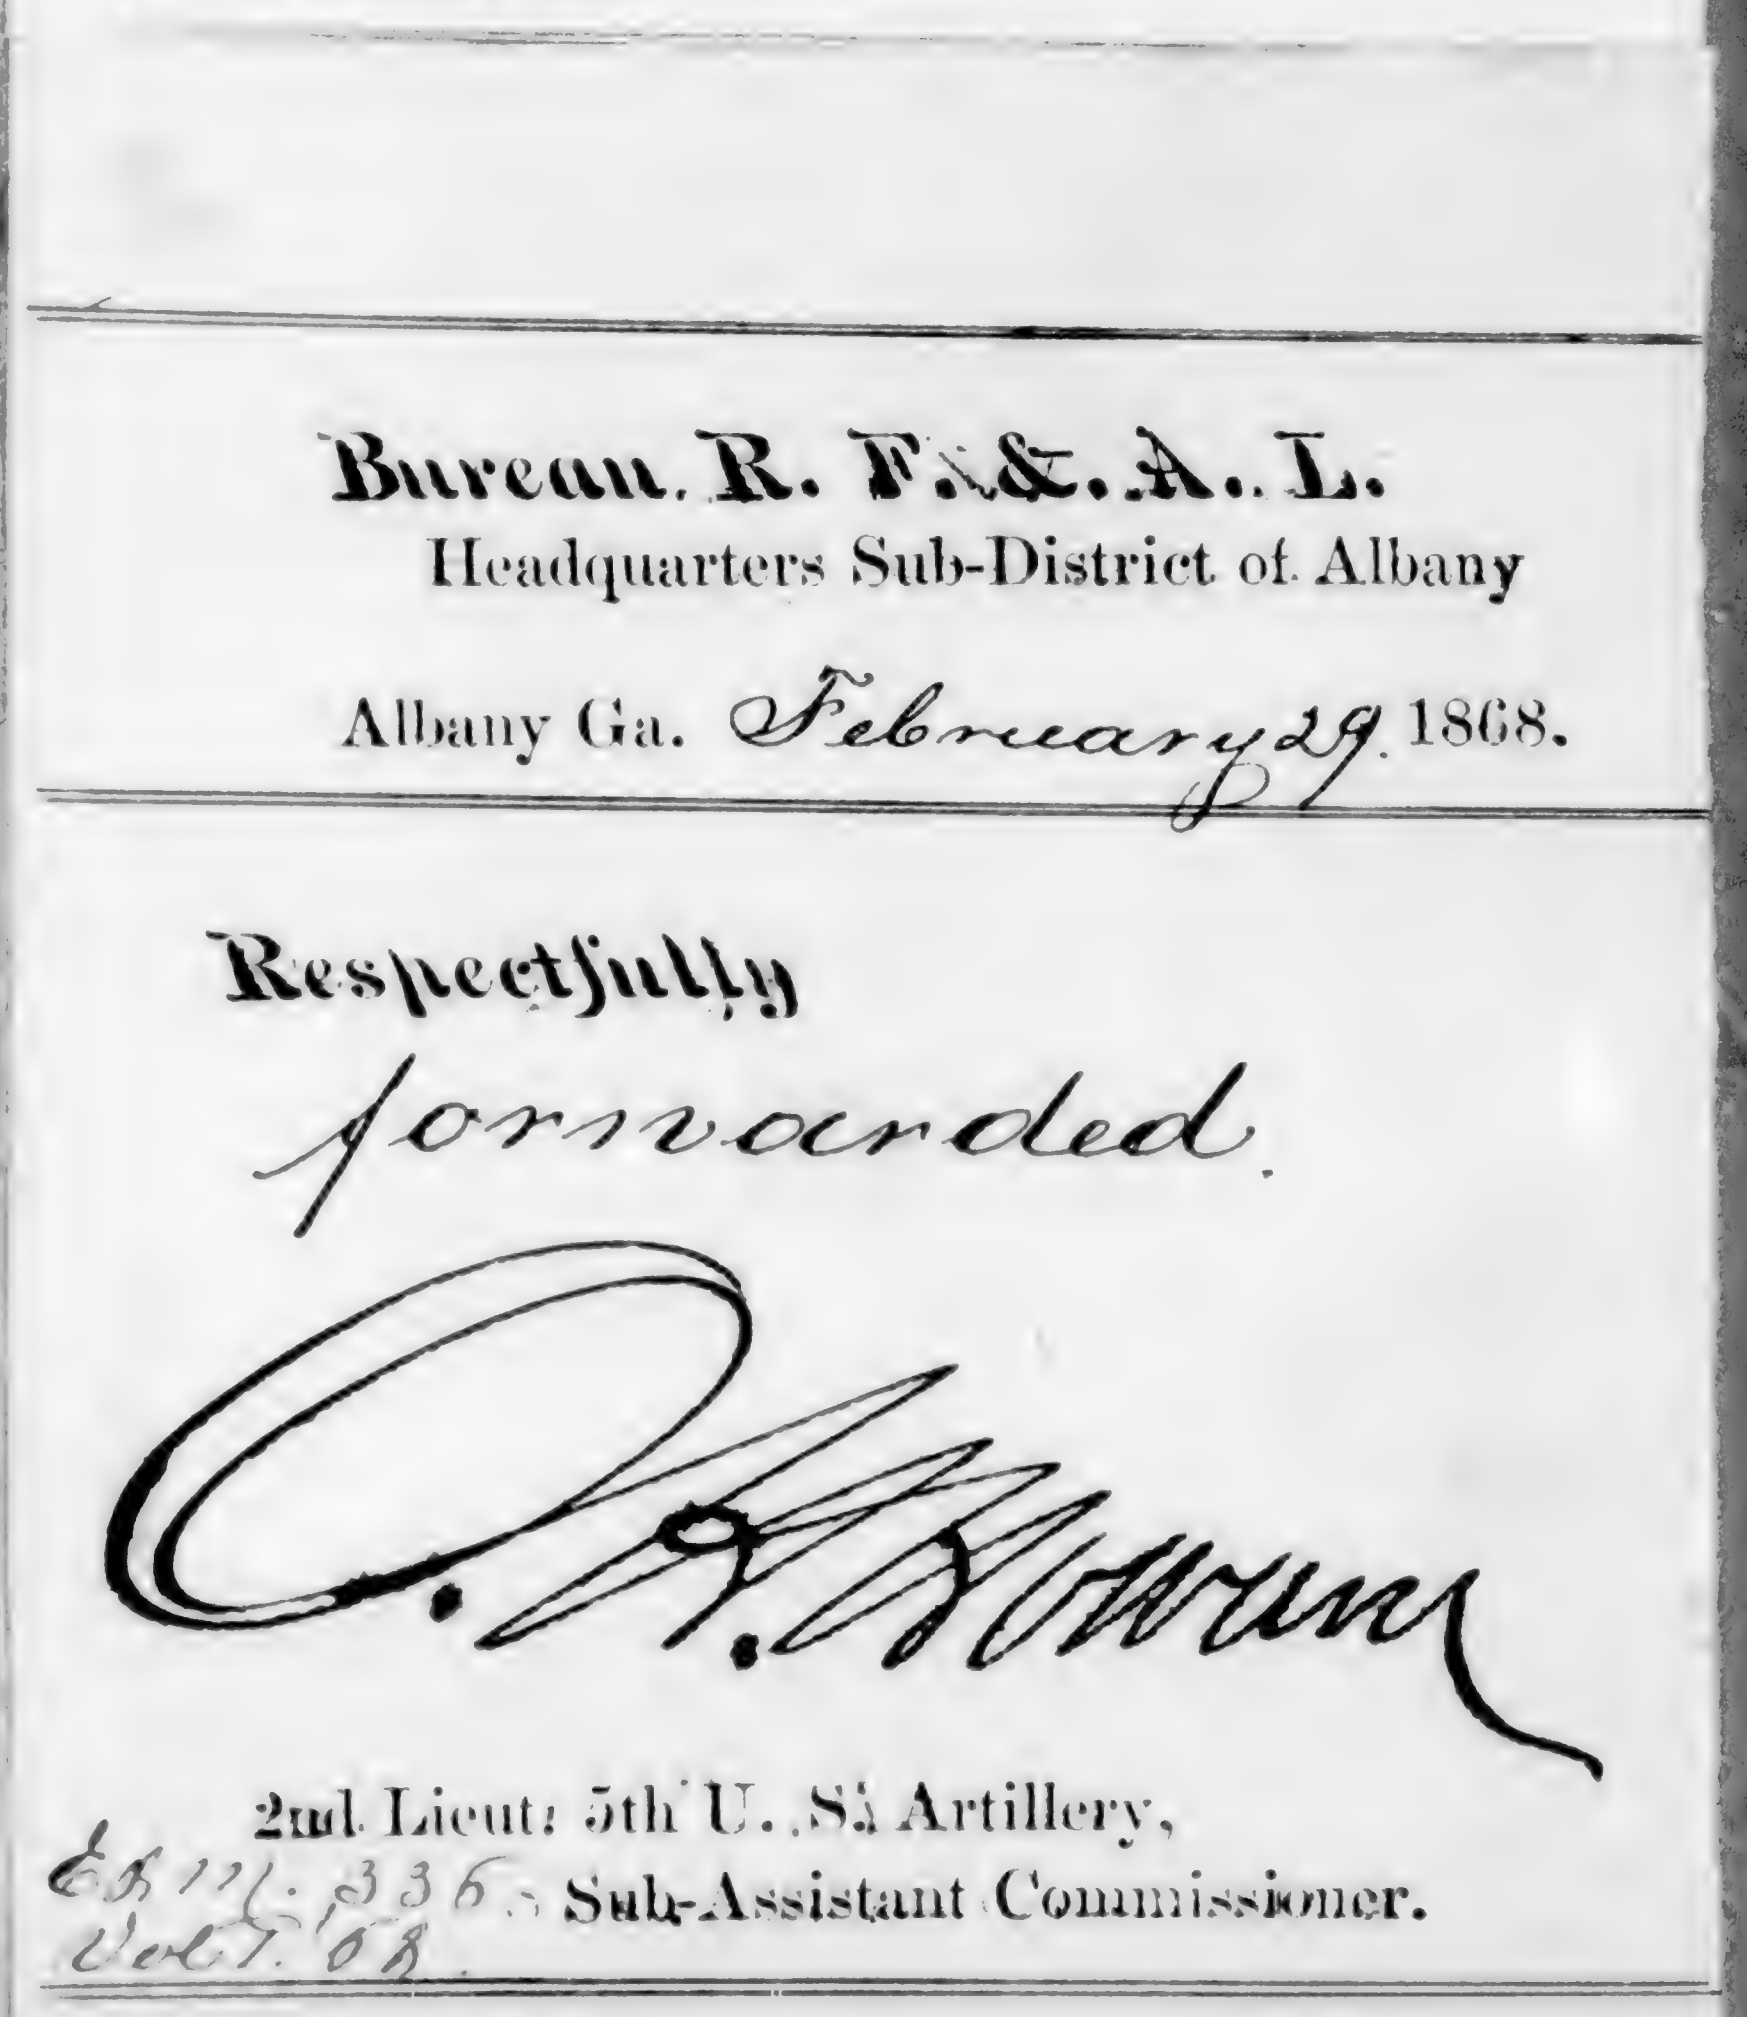 Bureau R. F. & A. L.
Headquarters Sub-District of Albany
Albany Ga. February 29. 1868.
Respectfully
forwarded.
O. H. Howard
2nd Lieut: 5th U. S. Artillery,
Sub-Assistant Commissioner.
336
Vol 1. '68.